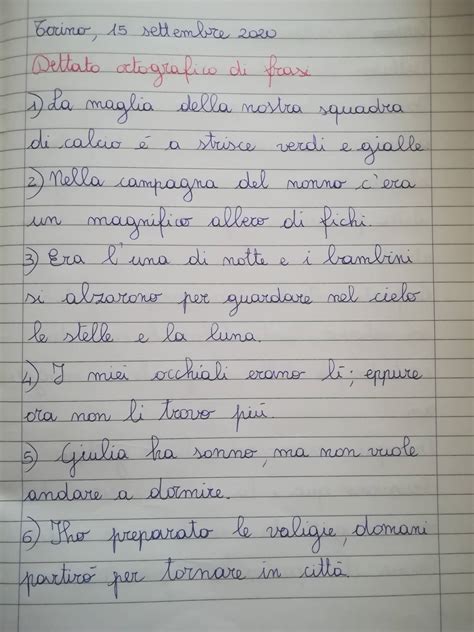 Torino, 15 settembre 2020
Dettato ortografico di frasi
1) La maglia della nostra squadra
di calcio é a strisce verdi e gialle
2) Nella campagna del nonno c'era
un magnifico albero di fichi.
3) Era l'una di notte e i bambini
si alzarono per guardare nel cielo
le stelle e la luna.
4) I miei occhiali erano lí; eppure
ora non li trovo piú.
5) Giulia ha sonno, ma non vuole
andare a dormire.
6) Ho preparato le valigie, domani
partiró per tornare in cittá